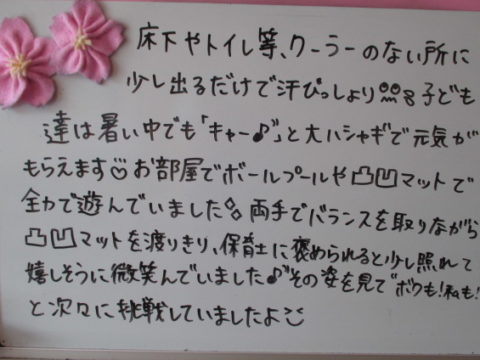 床下やトイレ等、クーラーのない所に
少し出るだけで汗びっしょり 子ども
達は暑い中でも「キャー♪」と大ハシャギで元気が
もらえます☺お部屋でボールプールや凸凹マットで
全力で遊んでいました 両手でバランスを取りながら
凸凹マットを渡りきり、保育士に褒められると少し照れて
嬉しそうに微笑んでいました♪その姿を見て“ボクも!私も!
と次々に挑戦していましたよ☺